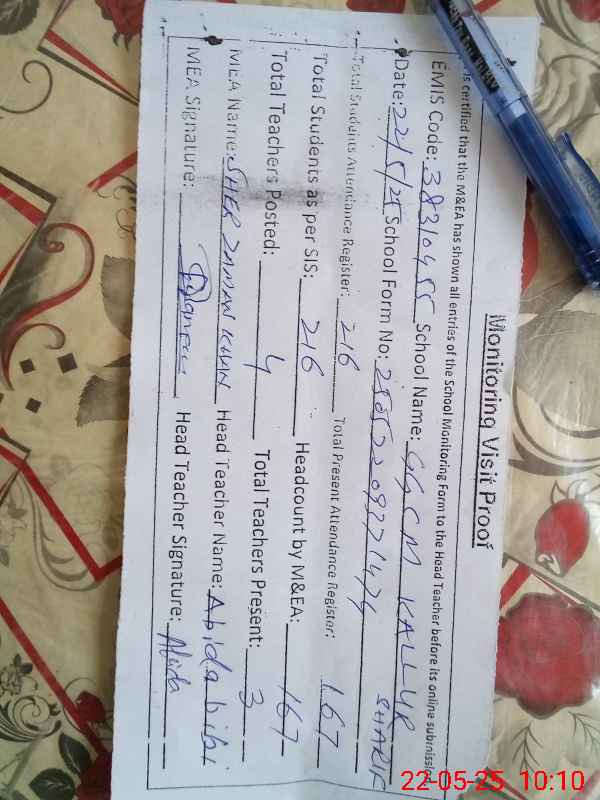 Monitoring Visit Proof
is certified that the M&EA has shown all entries of the School Monitoring Form to the Head Teacher before its online submission
EMIS Code: 38310455 School Name: GGCM KALLUR SHARIF
Date: 22/5/25 School Form No:
Total Students Attendance Register: 216 Total Present Attendance Register: 167
Total Students as per SIS: 216 Headcount by M&EA: 167
Total Teachers Posted: 4 Total Teachers Present: 3
MEA Name: SHER ZAMAN KHAN Head Teacher Name: Abida bibi
MEA Signature: Head Teacher Signature: Abida
22-05-25 10:10